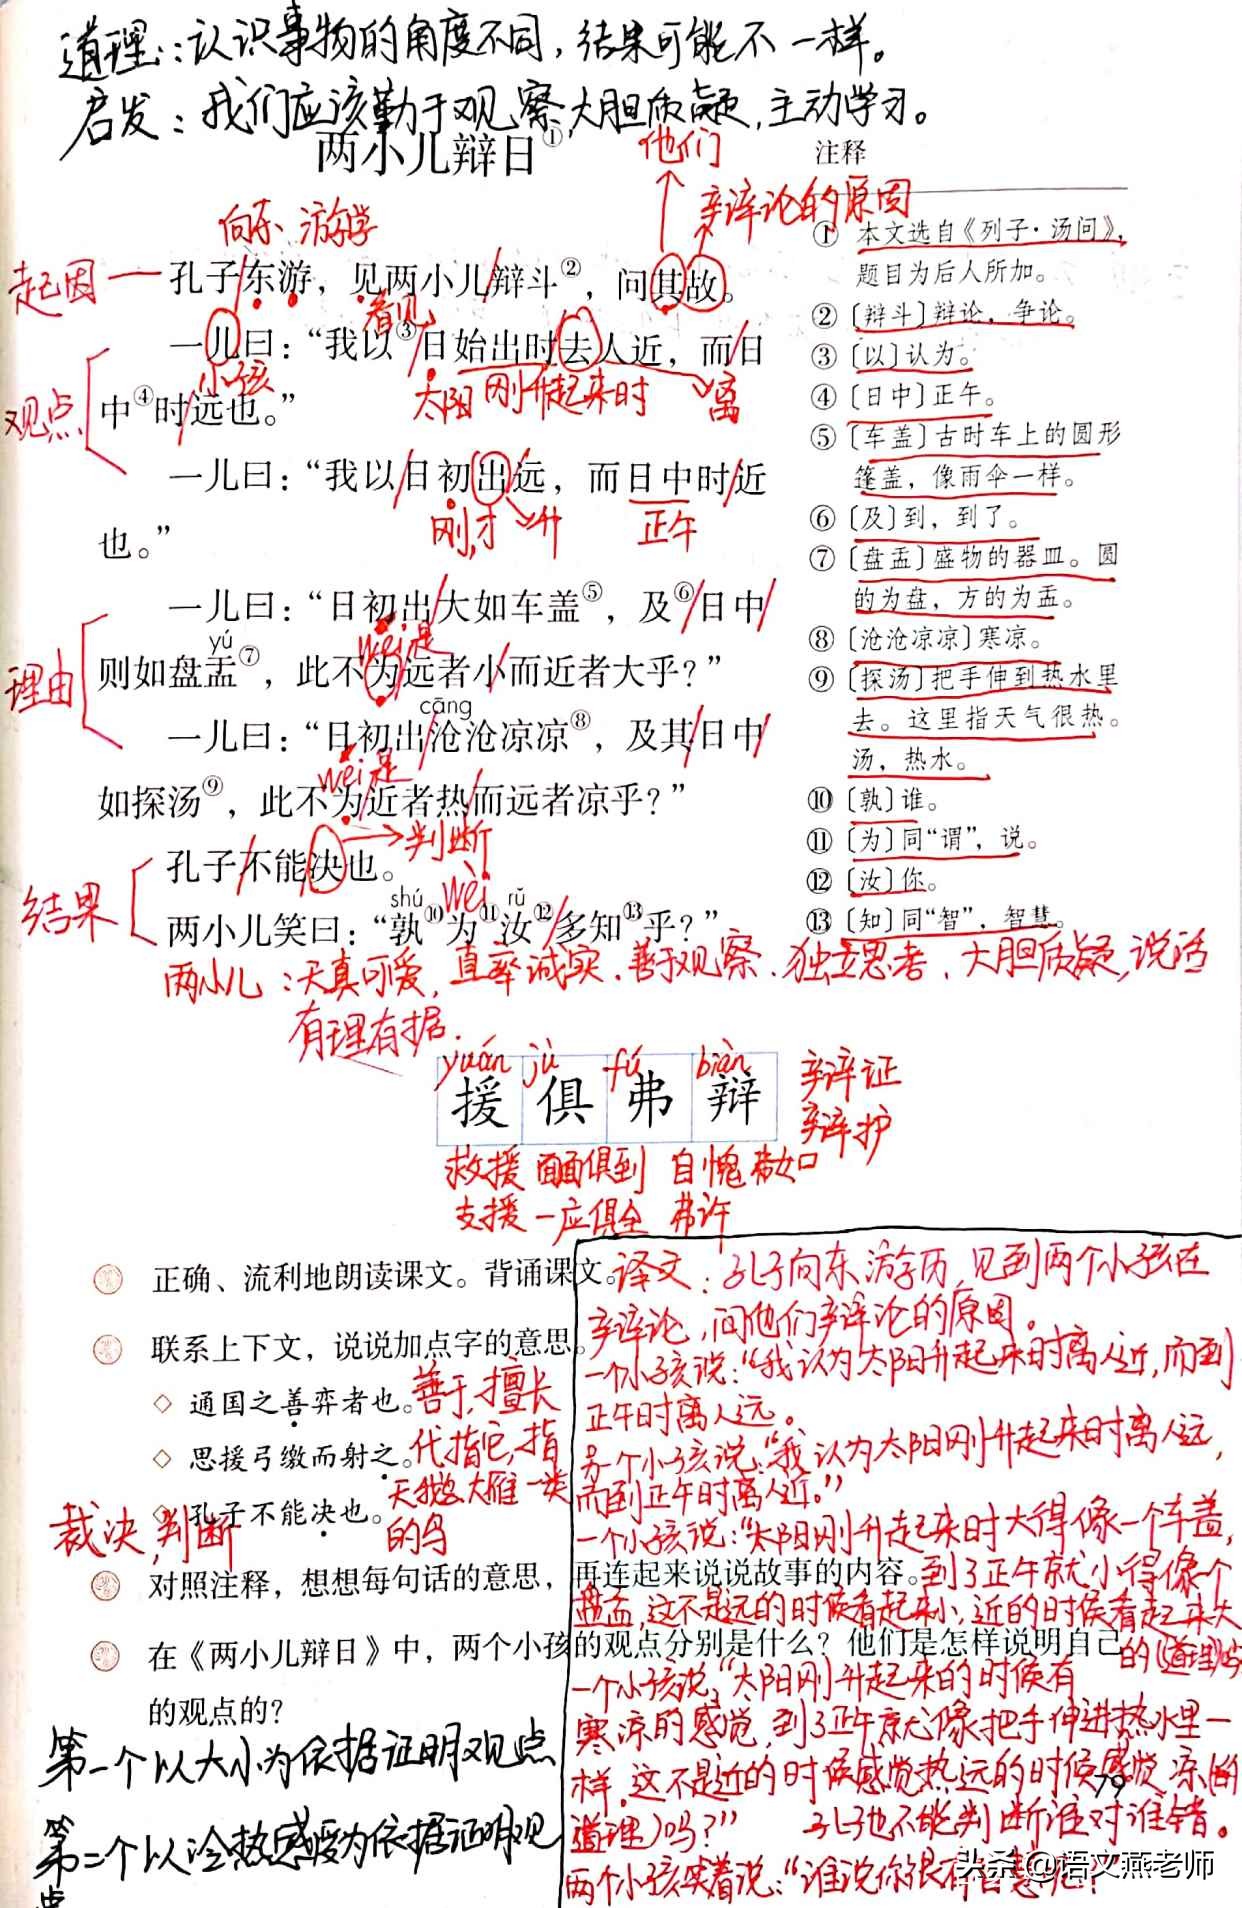 道理：认识事物的角度不同，结果可能不一样。
启发：我们应该勤于观察大胆质疑，主动学习。
两小儿辩日①
他们
辩论的原因
向东 游学
起因
孔子东游，见两小儿辩斗②，问其故。
看见
一儿曰：“我以③日始出时去人近，而日
小孩
太阳 刚升起来时 离
观点
中④时远也。”
一儿曰：“我以日初出远，而日中时近
刚,才 升 正午
也。”
一儿曰：“日初出大如车盖⑤，及⑥日中
yú
wéi是
理由
则如盘盂⑦，此不为远者小而近者大乎？”
cāng
一儿曰：“日初出沧沧凉凉⑧，及其日中
wéi是
如探汤⑨，此不为近者热而远者凉乎？”
判断
孔子不能决也。
结果
shú wèi rǔ
两小儿笑曰：“孰⑩为⑪汝⑫多知⑬乎？”
两小儿：天真可爱，直率诚实、善于观察、独立思考、大胆质疑，说话
有理有据.
注释
① 本文选自《列子·汤问》，
题目为后人所加。
② 〔辩斗〕辩论，争论。
③ 〔以〕认为。
④ 〔日中〕正午。
⑤ 〔车盖〕古时车上的圆形
篷盖，像雨伞一样。
⑥ 〔及〕到，到了。
⑦ 〔盘盂〕盛物的器皿。圆
的为盘，方的为盂。
⑧ 〔沧沧凉凉〕寒凉。
⑨ 〔探汤〕把手伸到热水里
去。这里指天气很热。
汤，热水。
⑩ 〔孰〕谁。
⑪ 〔为〕同“谓”，说。
⑫ 〔汝〕你。
⑬ 〔知〕同“智”，智慧。
yuán jù fú biàn
援 俱 弗 辩
辩证
辩护
救援 面面俱到 自愧弗如
支援 一应俱全 弗许
正确、流利地朗读课文。背诵课文。
联系上下文，说说加点字的意思。
◇ 通国之善弈者也。
善于，擅长
◇ 思援弓缴而射之。
代指它，指
天鹅、大雁一类
的鸟
◇ 孔子不能决也。
裁决，判断
对照注释，想想每句话的意思，再连起来说说故事的内容。
在《两小儿辩日》中，两个小孩的观点分别是什么？他们是怎样说明自己
的观点的？
第一个以大小为依据证明观点
第二个以冷热感受为依据证明观
点
译文：孔子向东游历，见到两个小孩在
辩论，问他们辩论的原因。
一个小孩说：“我认为太阳升起来时离人近，而到
正午时离人远。
另一个小孩说：“我认为太阳刚升起来时离人远，
而到正午时离人近。”
一个小孩说：“太阳刚升起来时大得像一个车盖，
到了正午就小得像个
盘盂，这不是远的时候看起来小，近的时候看起来大
的(道理)吗
一个小孩说，“太阳刚升起来的时候有
寒凉的感觉，到了正午就像把手伸进热水里一
样，这不是近的时候感觉热远的时候感觉凉(的
道理)吗？” 孔子也不能判断谁对谁错。
两个小孩笑着说：“谁说你很有智慧呢？
79
头条@语文燕老师